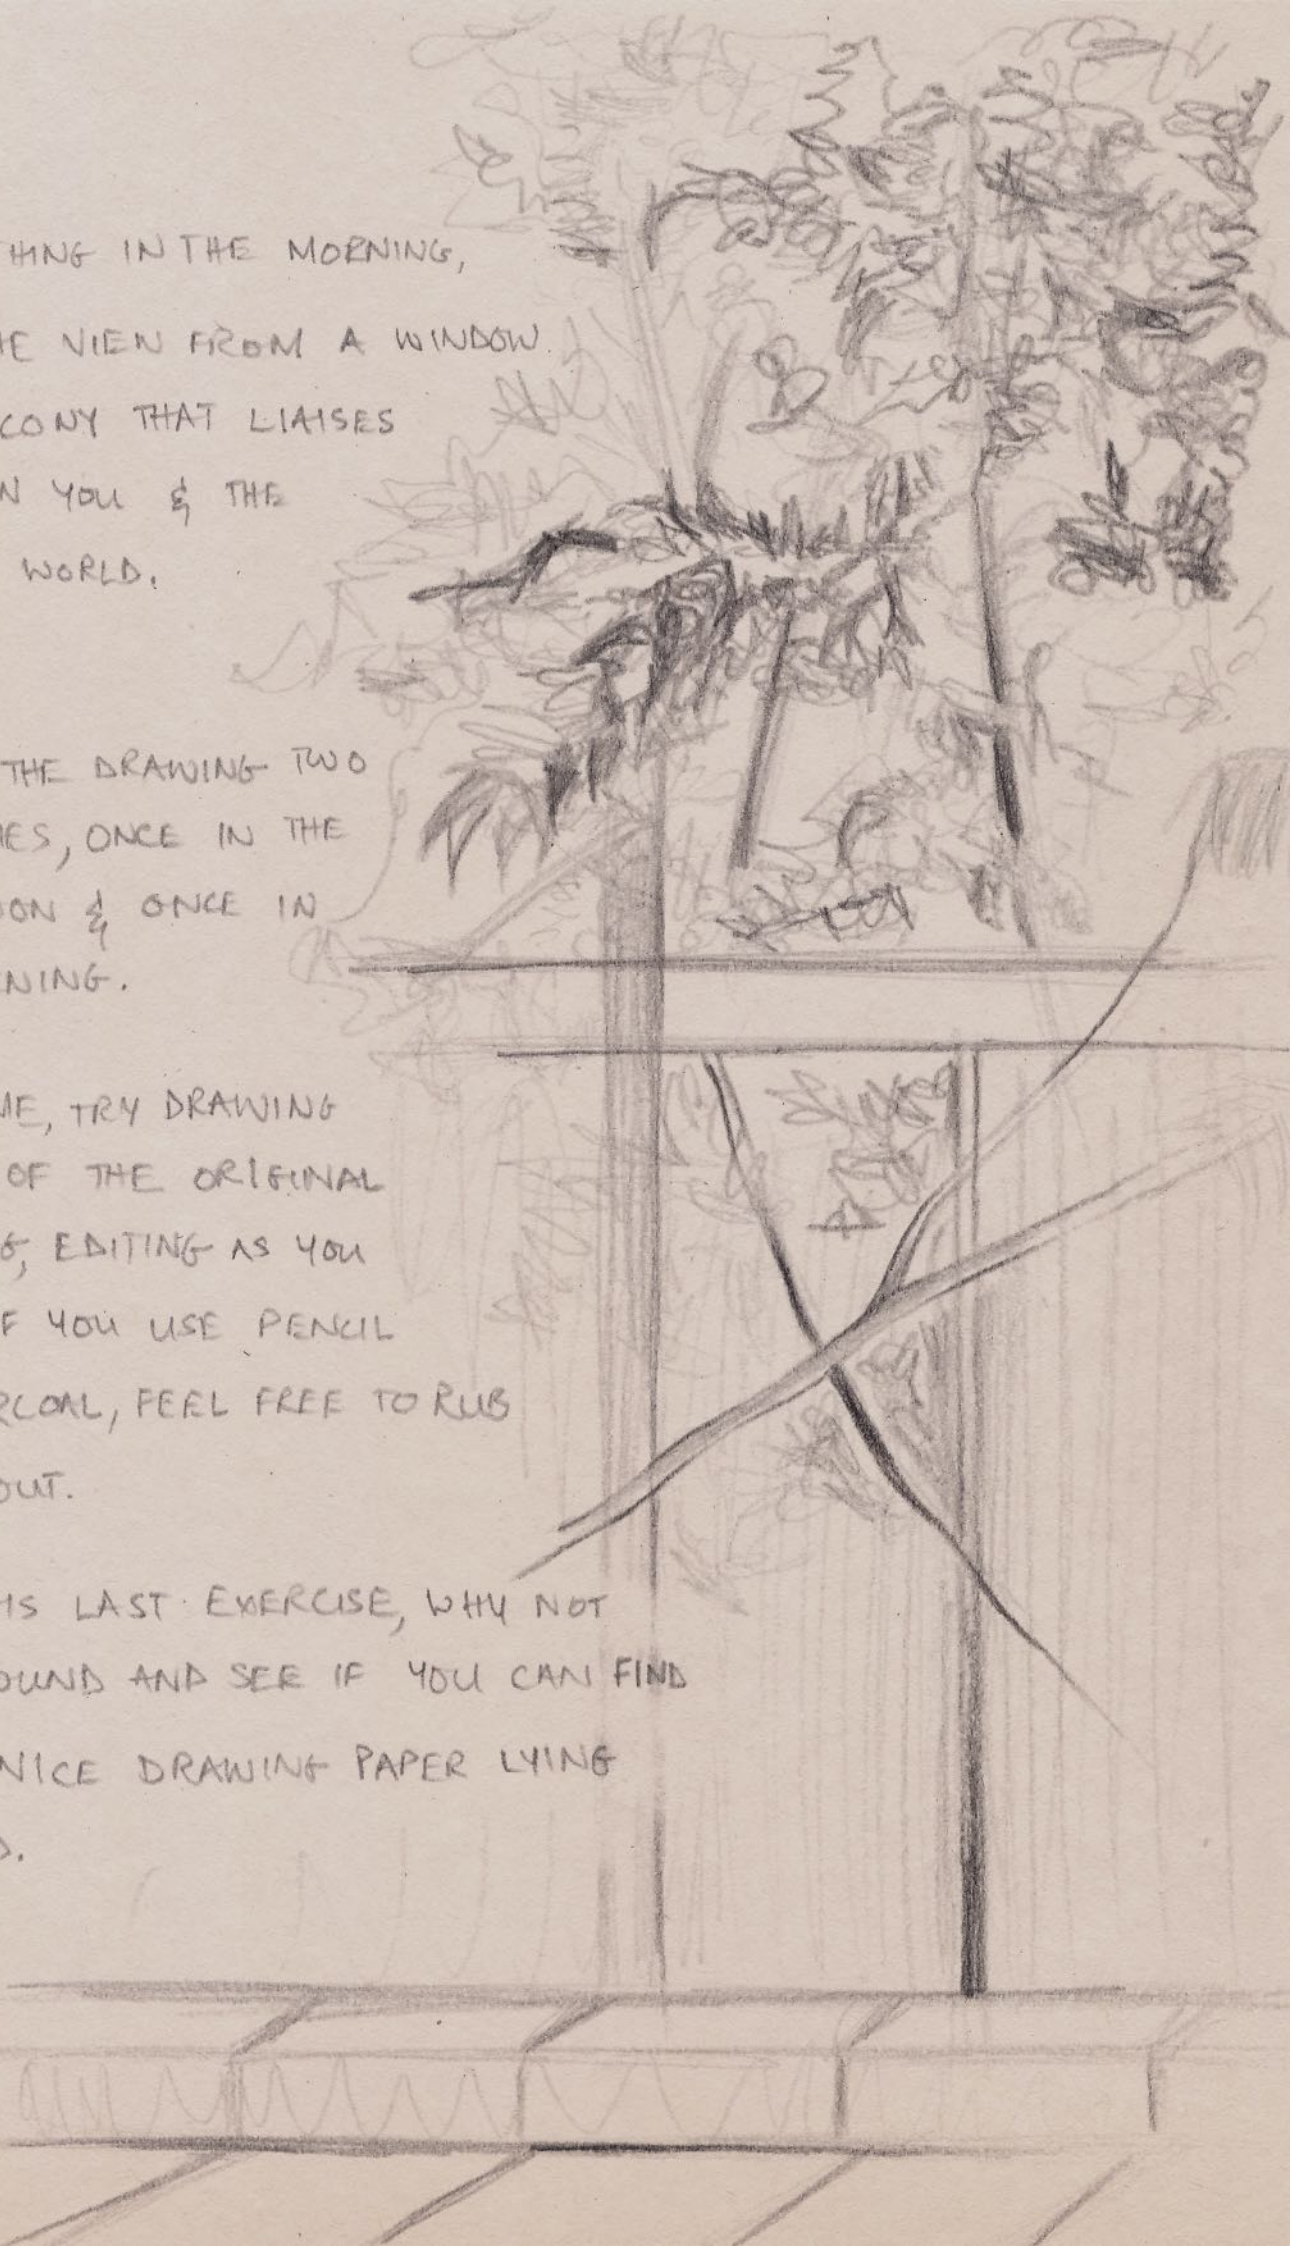 THING IN THE MORNING,
HE VIEW FROM A WINDOW
CONY THAT LIAISES
N YOU & THE
WORLD.
THE DRAWING TWO
MES, ONCE IN THE
OON & ONCE IN
NING.
ME, TRY DRAWING
OF THE ORIGINAL
G, EDITING AS YOU
F YOU USE PENCIL
RCOAL, FEEL FREE TO RUB
OUT.
HIS LAST EXERCISE, WHY NOT
OUND AND SEE IF YOU CAN FIND
NICE DRAWING PAPER LYING
D.